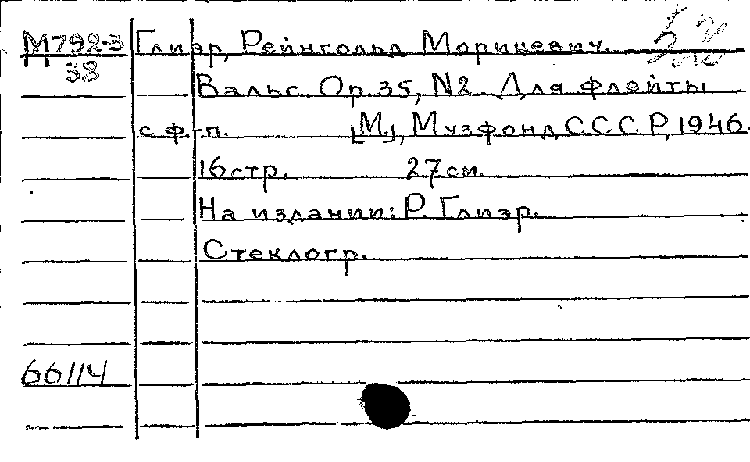 М792-3 Глиэр, Рейнгольд Морицевич.
38
Вальс. Ор. 35, N2. Для флейты
с ф.-п. [М.], Музфонд СССР, 1946.
16 стр. 27 см.
На издании: Р. Глиэр.
Стеклогр.
66114